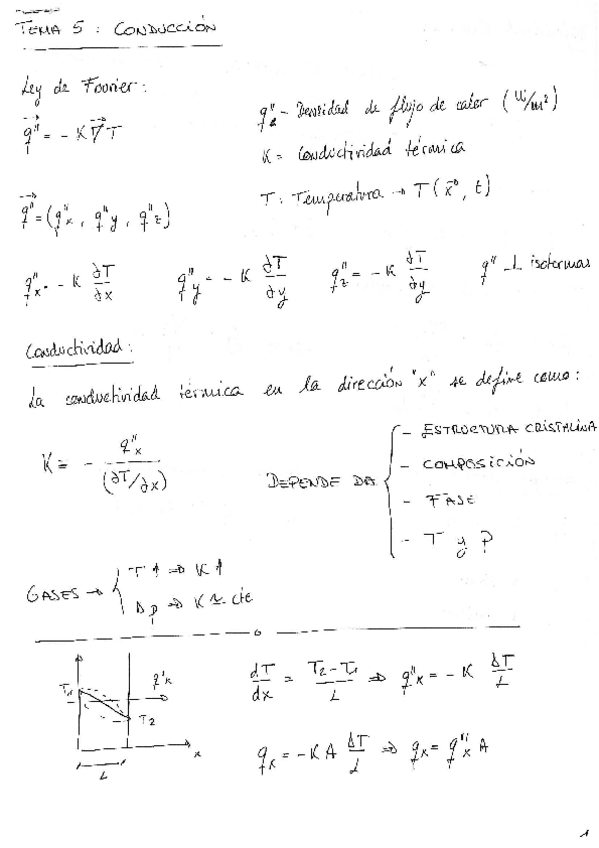 TEMA 5 : CONDUCCIÓN
Ley de Fourier :
q⃗" = - K ∇⃗T
q"z - Densidad de flujo de calor ( W/m² )
K = Conductividad térmica
T : Temperatura → T ( x⃗ , t )
q⃗" = ( q"x , q"y , q"z )
q"x = - K ∂T/∂x    q"y = - K ∂T/∂y    q"z = - K ∂T/∂y    q" ⊥ isotermas
Conductividad :
La conductividad térmica en la dirección "x" se define como :
K = - q"x / (∂T/∂x)
DEPENDE DA
- ESTRUCTURA CRISTALINA
- COMPOSICIÓN
- FASE
- T y P
GASES →
T ↑ ⇒ K ↑
Δp ⇒ K ≃ cte
T1 q"x T2 L x
dT/dx = T2 - T1 / L ⇒ q"x = - K ΔT/L
qx = - K A ΔT/L ⇒ qx = q"x A
1